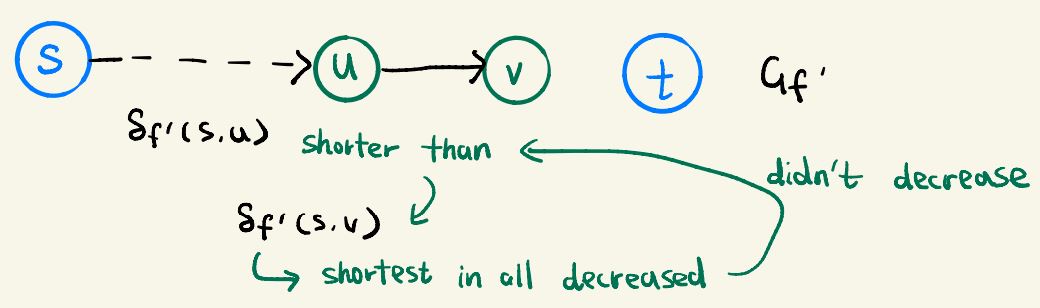 s u v t G_f'
δ_f'(s,u) shorter than didn't decrease
δ_f'(s,v)
shortest in all decreased